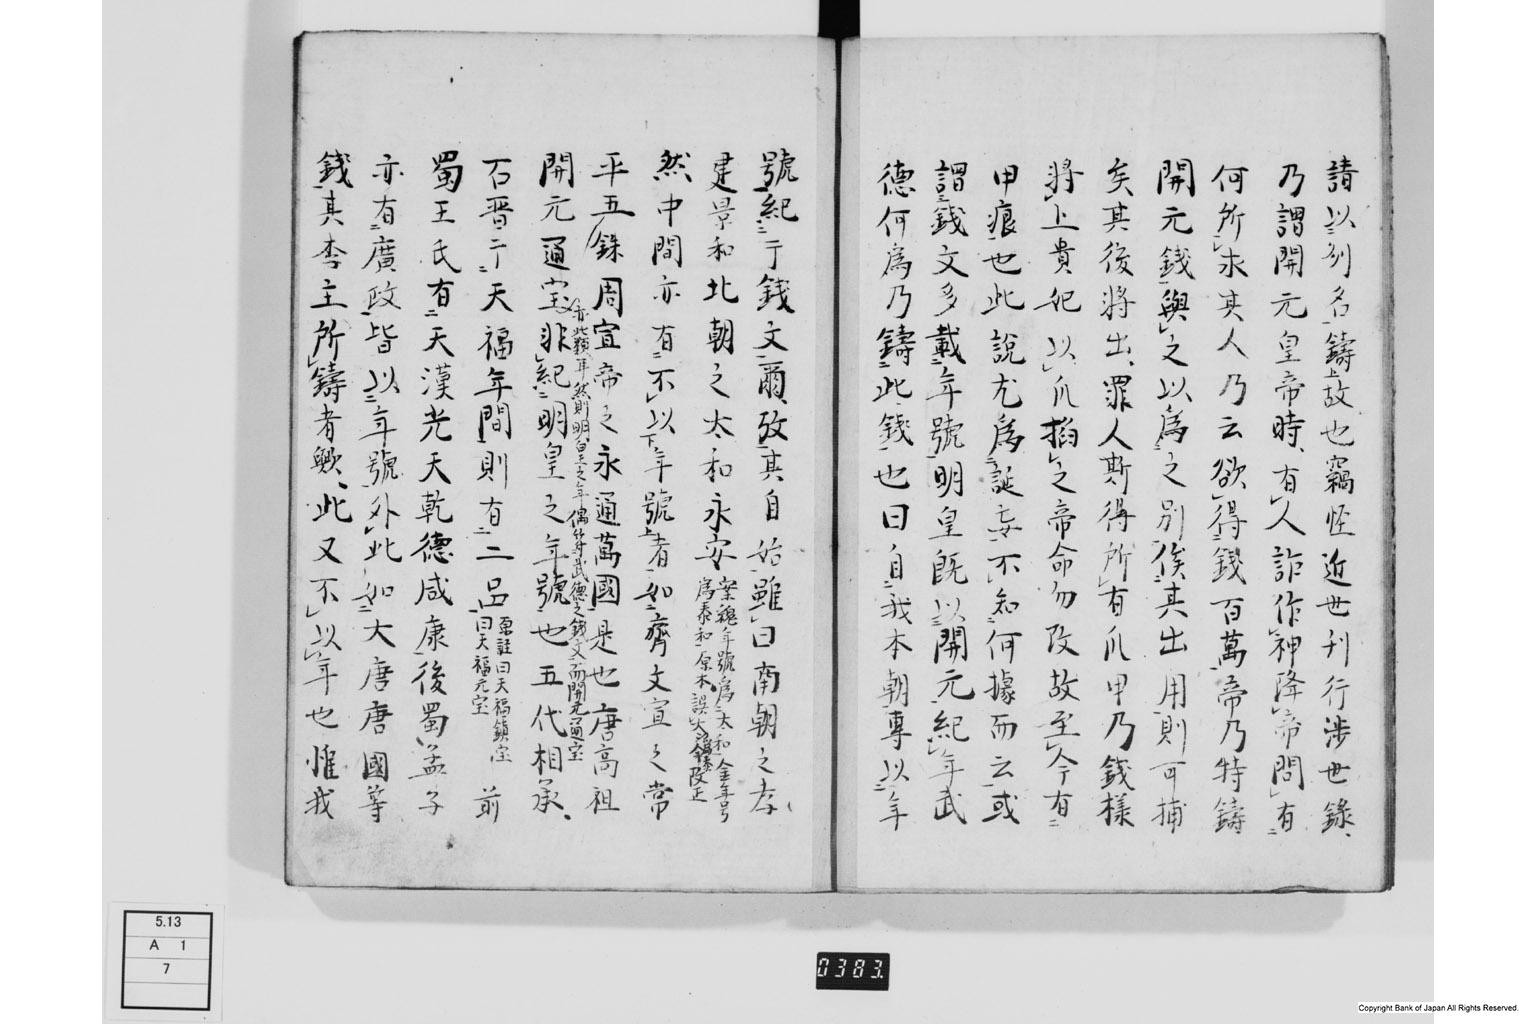 請以列名鑄故也竊怪近世刊行渉世錄
乃謂開元皇帝時有人詐作神降帝問有
何所求其人乃云欲得錢百萬帝乃特鑄
開元錢與之以為之別俟其出用則可捕
矣其後將出罪人斯得所有爪甲乃錢樣
將上貴妃以爪掐之帝命勿改故至今有
甲痕也此說尤為誕妄不知何據而云或
謂錢文多載年號明皇既以開元紀年武
德何為乃鑄此錢也曰自我本朝專以年
號紀于錢文爾攷其自始雖曰南朝之孝
建景和北朝之太和永安
案魏年號為太和金年号
為泰和原本誤今改正
然中間亦有不以年號者如齊文宣之常
平五銖周宣帝之永通萬國是也唐高祖
開元通宝非紀明皇之年號也五代相承
亦此類耳然則明皇之年偶符武德之錢文而開元通宝
石晋于天福年間則有二品
原註曰天福鎮宝
曰天福元宝
前
蜀王氏有天漢光天乾德咸康後蜀孟子
亦有廣政皆以年號外此如大唐唐國等
錢其李主所鑄者歟此又不以年也惟我
5.13
A 1
7
0383
Copyright Bank of Japan All Rights Reserved.